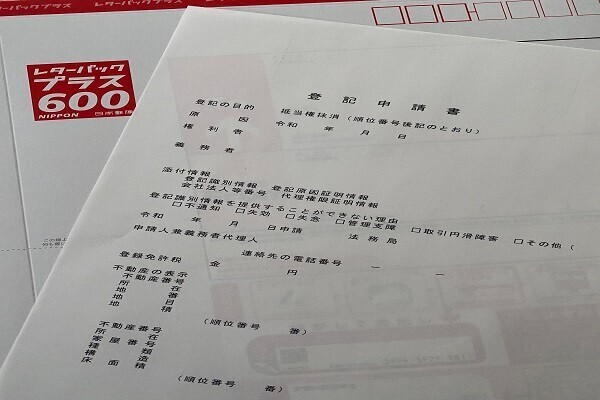 レターパックプラス
レターパック
プラス
600
NIPPON 日本郵便
登記申請書
登記の目的 抵当権抹消(順位番号後記のとおり)
原因 令和 年 月 日
権利者
義務者
添付情報
登記識別情報 登記原因証明情報
会社法人等番号 代理権限証明情報
登記識別情報を提供することができない理由
□不通知 □失効 □失念 □管理支障 □取引円滑障害 □その他(
令和 年 月 日申請 法務局
申請人兼義務者代理人
連絡先の電話番号 - -
登録免許税 金 円
不動産の表示
不動産番号
所在
地番
地目
地積
(順位番号 番)
不動産番号
所在
家屋番号
種類
構造
床面積
(順位番号 番)